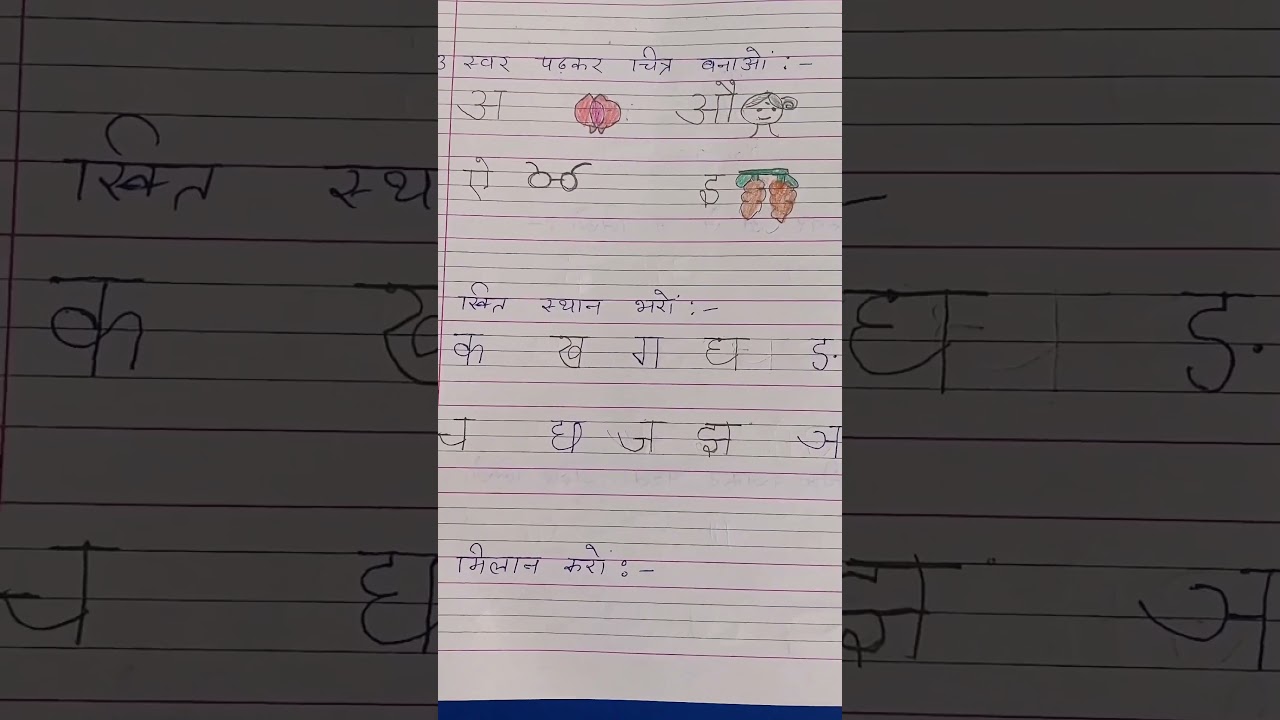 3 स्वर पढ़कर चित्र बनाओं :-
अ औ
ऐ इ
रिक्त स्थान भरों :-
क ख ग घ ङ
च छ ज झ ञ
मिलान करों :-